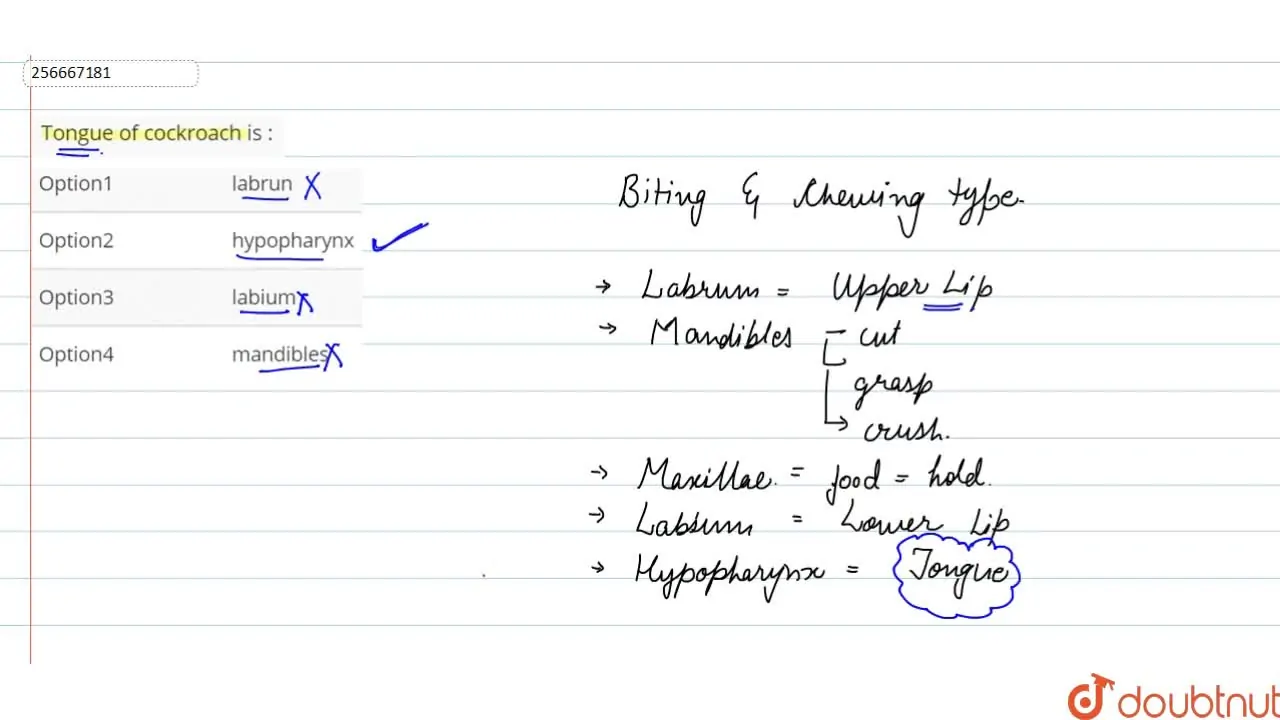 256667181
Tongue of cockroach is :
Option1 labrun X
Option2 hypopharynx ✓
Option3 labium X
Option4 mandibles X
Biting & Chewing type.
→ Labrum = Upper Lip
→ Mandibles - cut
grasp
→ crush.
→ Maxillae. = food = hold.
→ Labium = Lower Lip
→ Hypopharynx = Tongue
doubtnut